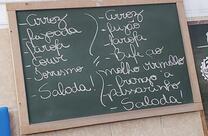 -arroz
-feijoada
-farofa
-couve
-torresmo
-Salada!
-arroz
-feijão
-farofa
-Bife ao
molho vermelho
-frango a
passarinho
-Salada!